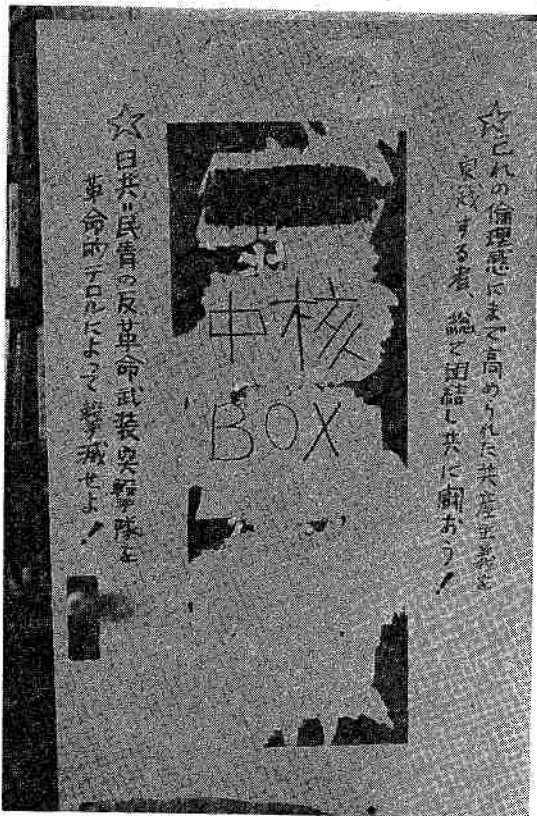 ☆己れの倫理感にまで高められた共産主義を
実践する者、総て団結し共に闘おう!
中核
BOX
☆日共=民青の反革命武装突撃隊を
革命的テロルによって撃滅せよ!